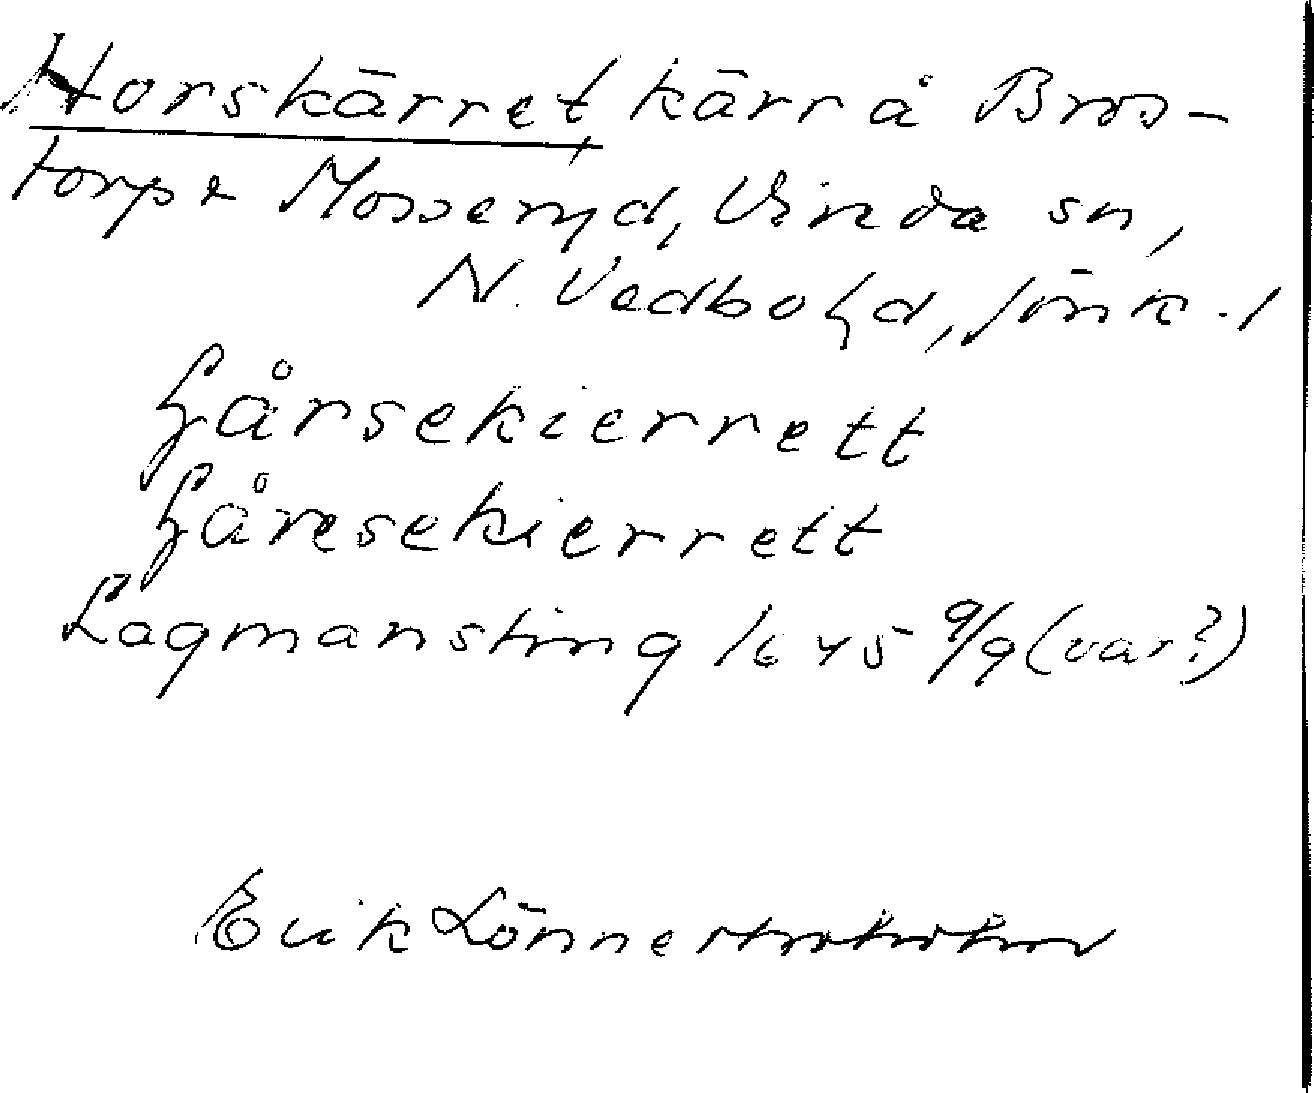 Horskärret, kärr å Bros-
torp & Mosseryd, Vireda sn,
N. Vedbo hd, Jönk. l
Hårsekierrett
Håresekierrett
Lagmansting 1645 9/9 (var?)
Erik Lönnerholm